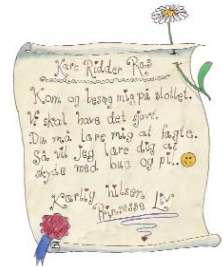 Kære Ridder Ras
Kom og besøg mig på slottet.
Vi skal have det sjovt.
Du må lære mig at fægte.
Så vil jeg lære dig at
skyde med bue og pil..
Kærlig hilsen
Prinsesse Liv